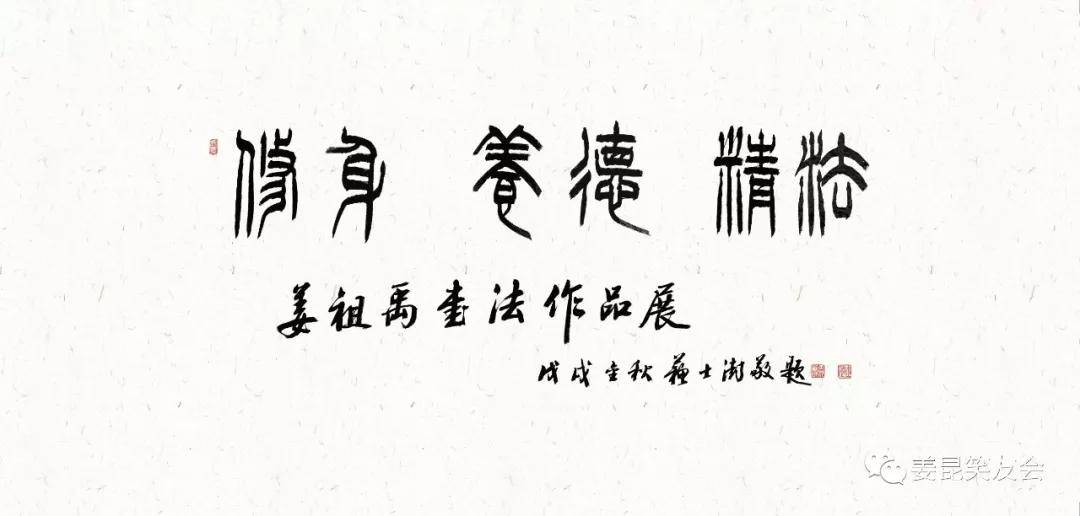 修身 養德 精法
姜祖禹書法作品展
戊戌金秋蘇士澍敬題
姜昆笑友会